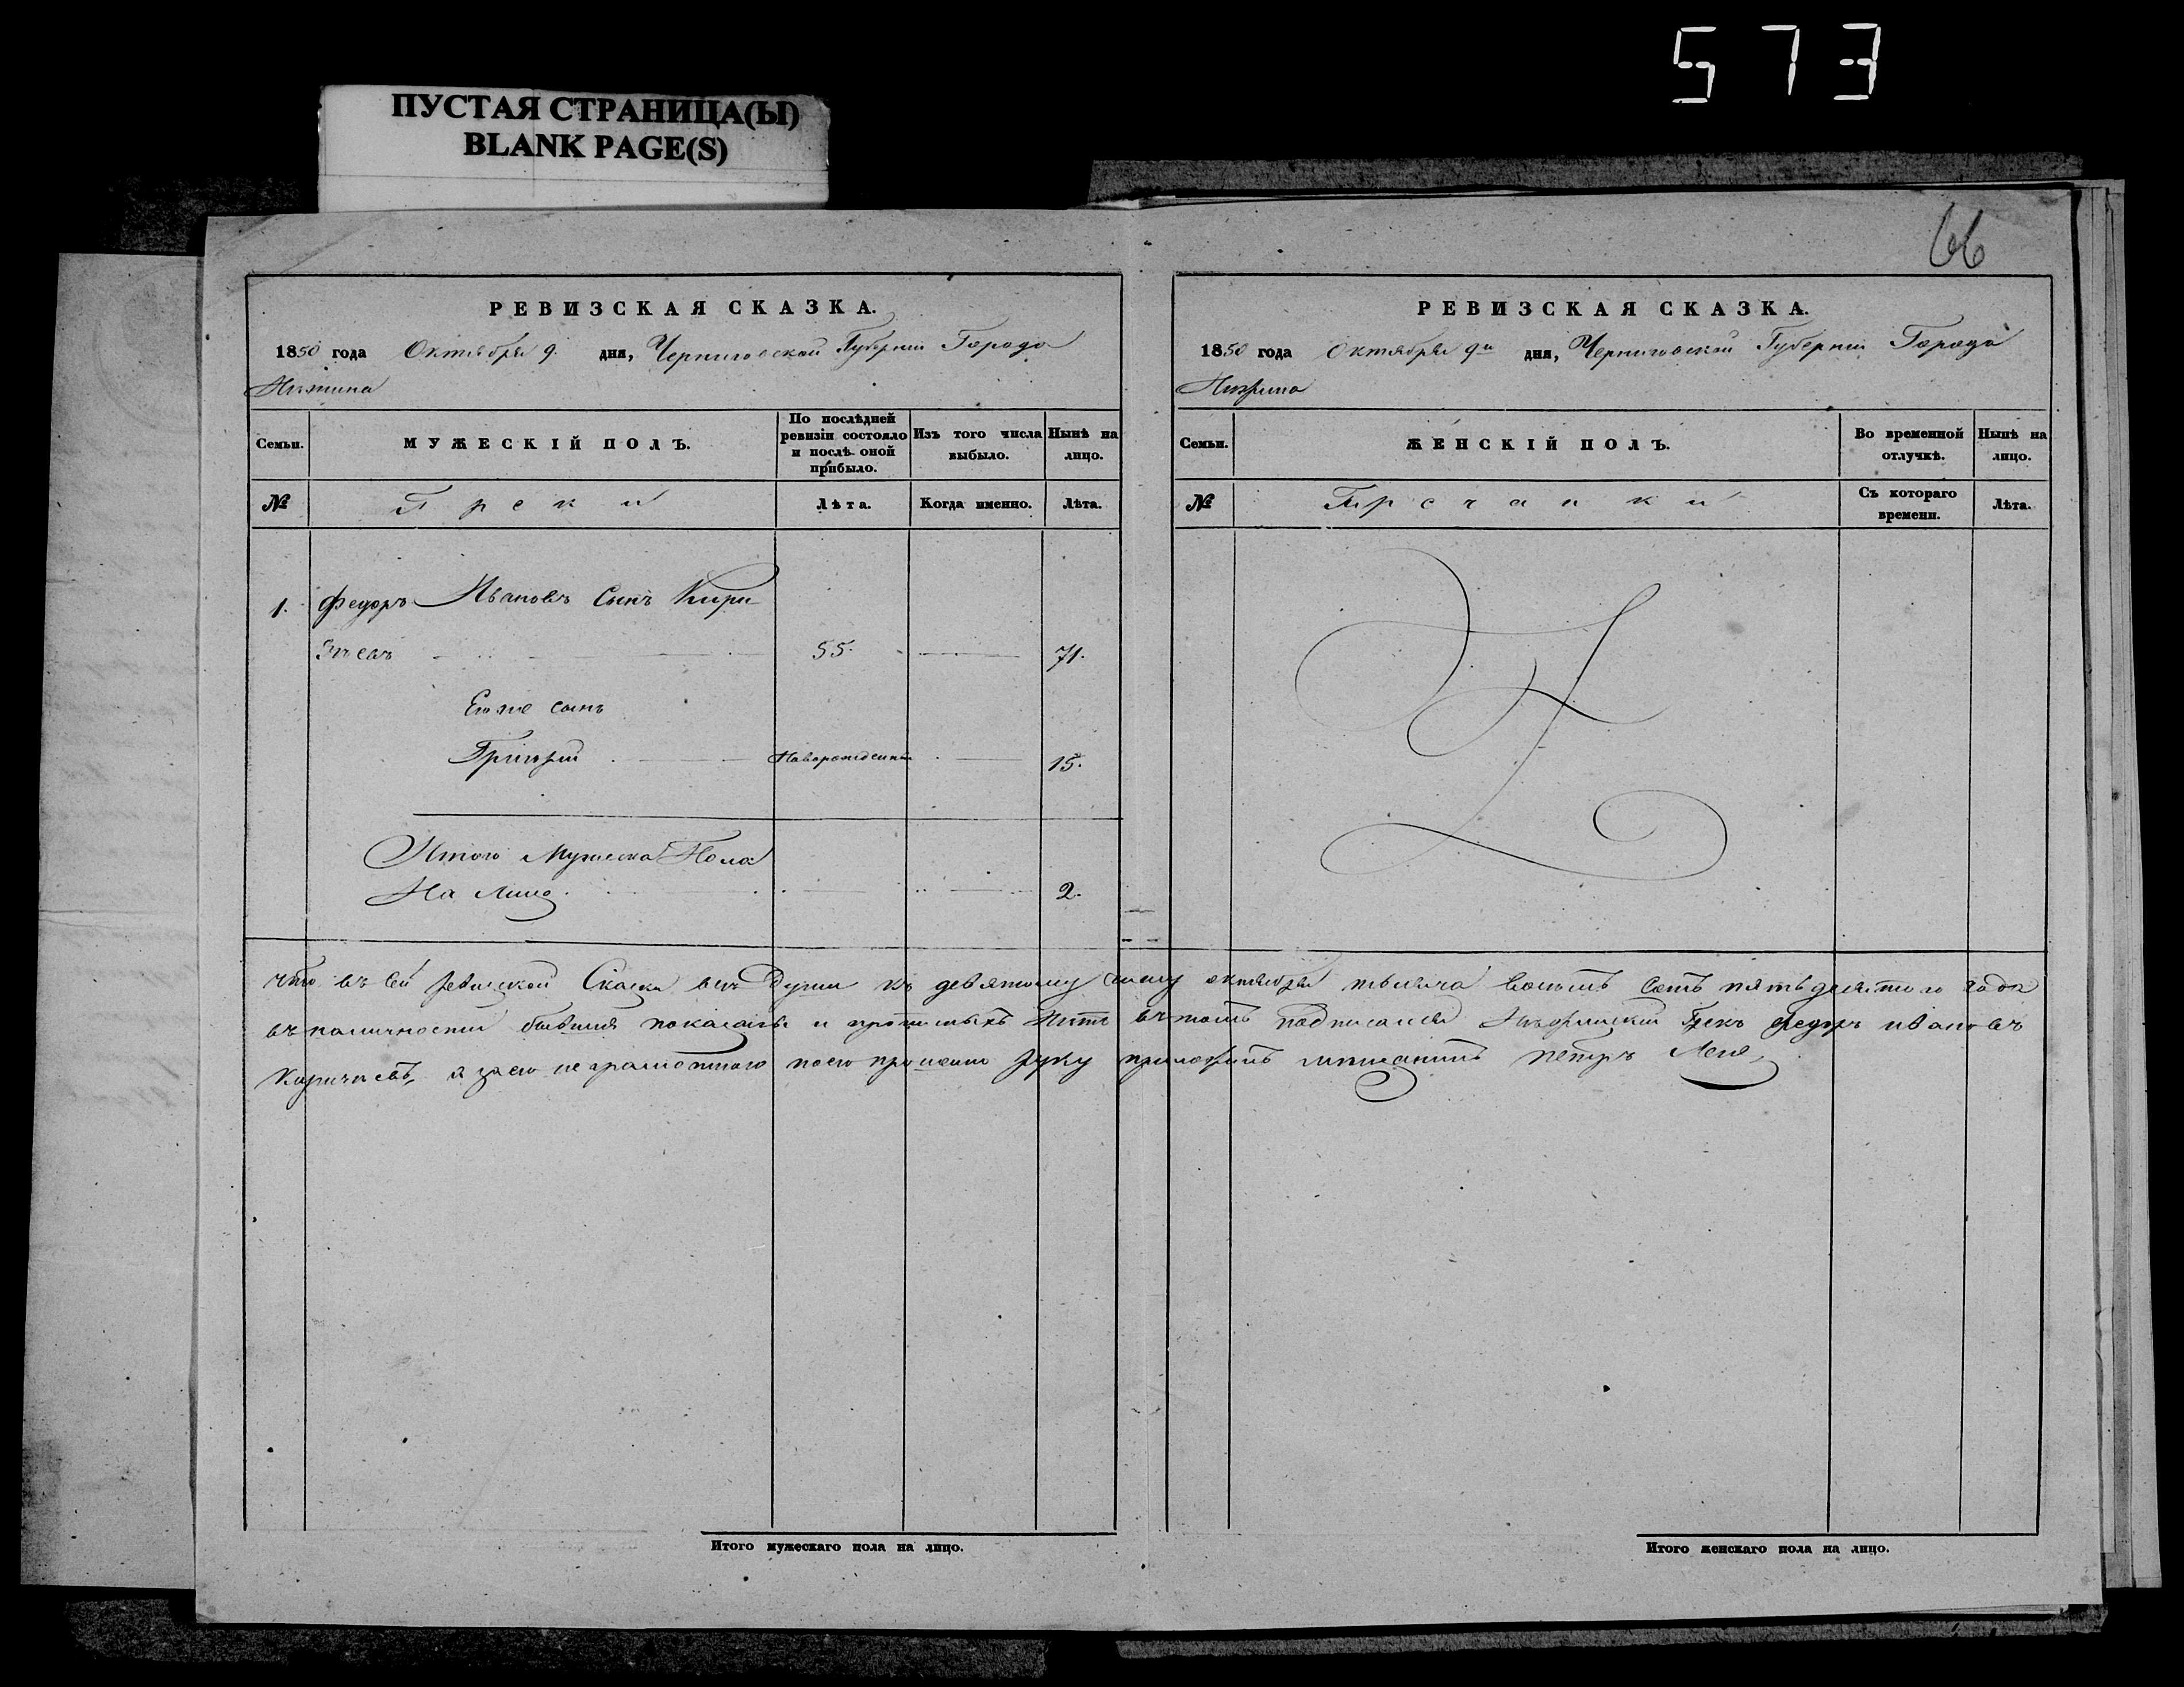 573
ПУСТАЯ СТРАНИЦА(Ы)
BLANK PAGE(S)
66
РЕВИЗСКАЯ СКАЗКА.
1850 года Октября 9. дня, Черниговской Губерніи Города
Нѣжина
Семьи.
МУЖЕСКІЙ ПОЛЪ.
По послѣдней ревизіи состояло и послѣ оной прибыло.
Изъ того числа выбыло.
Нынѣ на лицо.
№
Греки
Лѣта.
Когда именно.
Лѣта.
1. Федоръ Ивановъ Сынъ Кири
55. 71.
Его же сынъ
Григорій Новорожденный 15.
Итого Мужеска Пола
На Лицо 2.
РЕВИЗСКАЯ СКАЗКА.
1850 года Октября 9го дня, Черниговской Губерніи Города
Нѣжина
Семьи.
ЖЕНСКІЙ ПОЛЪ.
Во временной отлучкѣ.
Нынѣ на лицо.
№
Гречанки
Съ котораго времени.
Лѣта.
что въ сей ревизской Сказки всѣ Души къ девятому числу октября тысяча восемъ сотъ пятьдесятого года
въ наличности бывшія показаны и прописныхъ нѣтъ въ томъ подписался Нѣжинский Грекъ федоръ ивановъ
а за его неграмотного по его прошению руку приложилъ мѣщанинъ петръ
Итого мужескаго пола на лицо.
Итого женскаго пола на лицо.